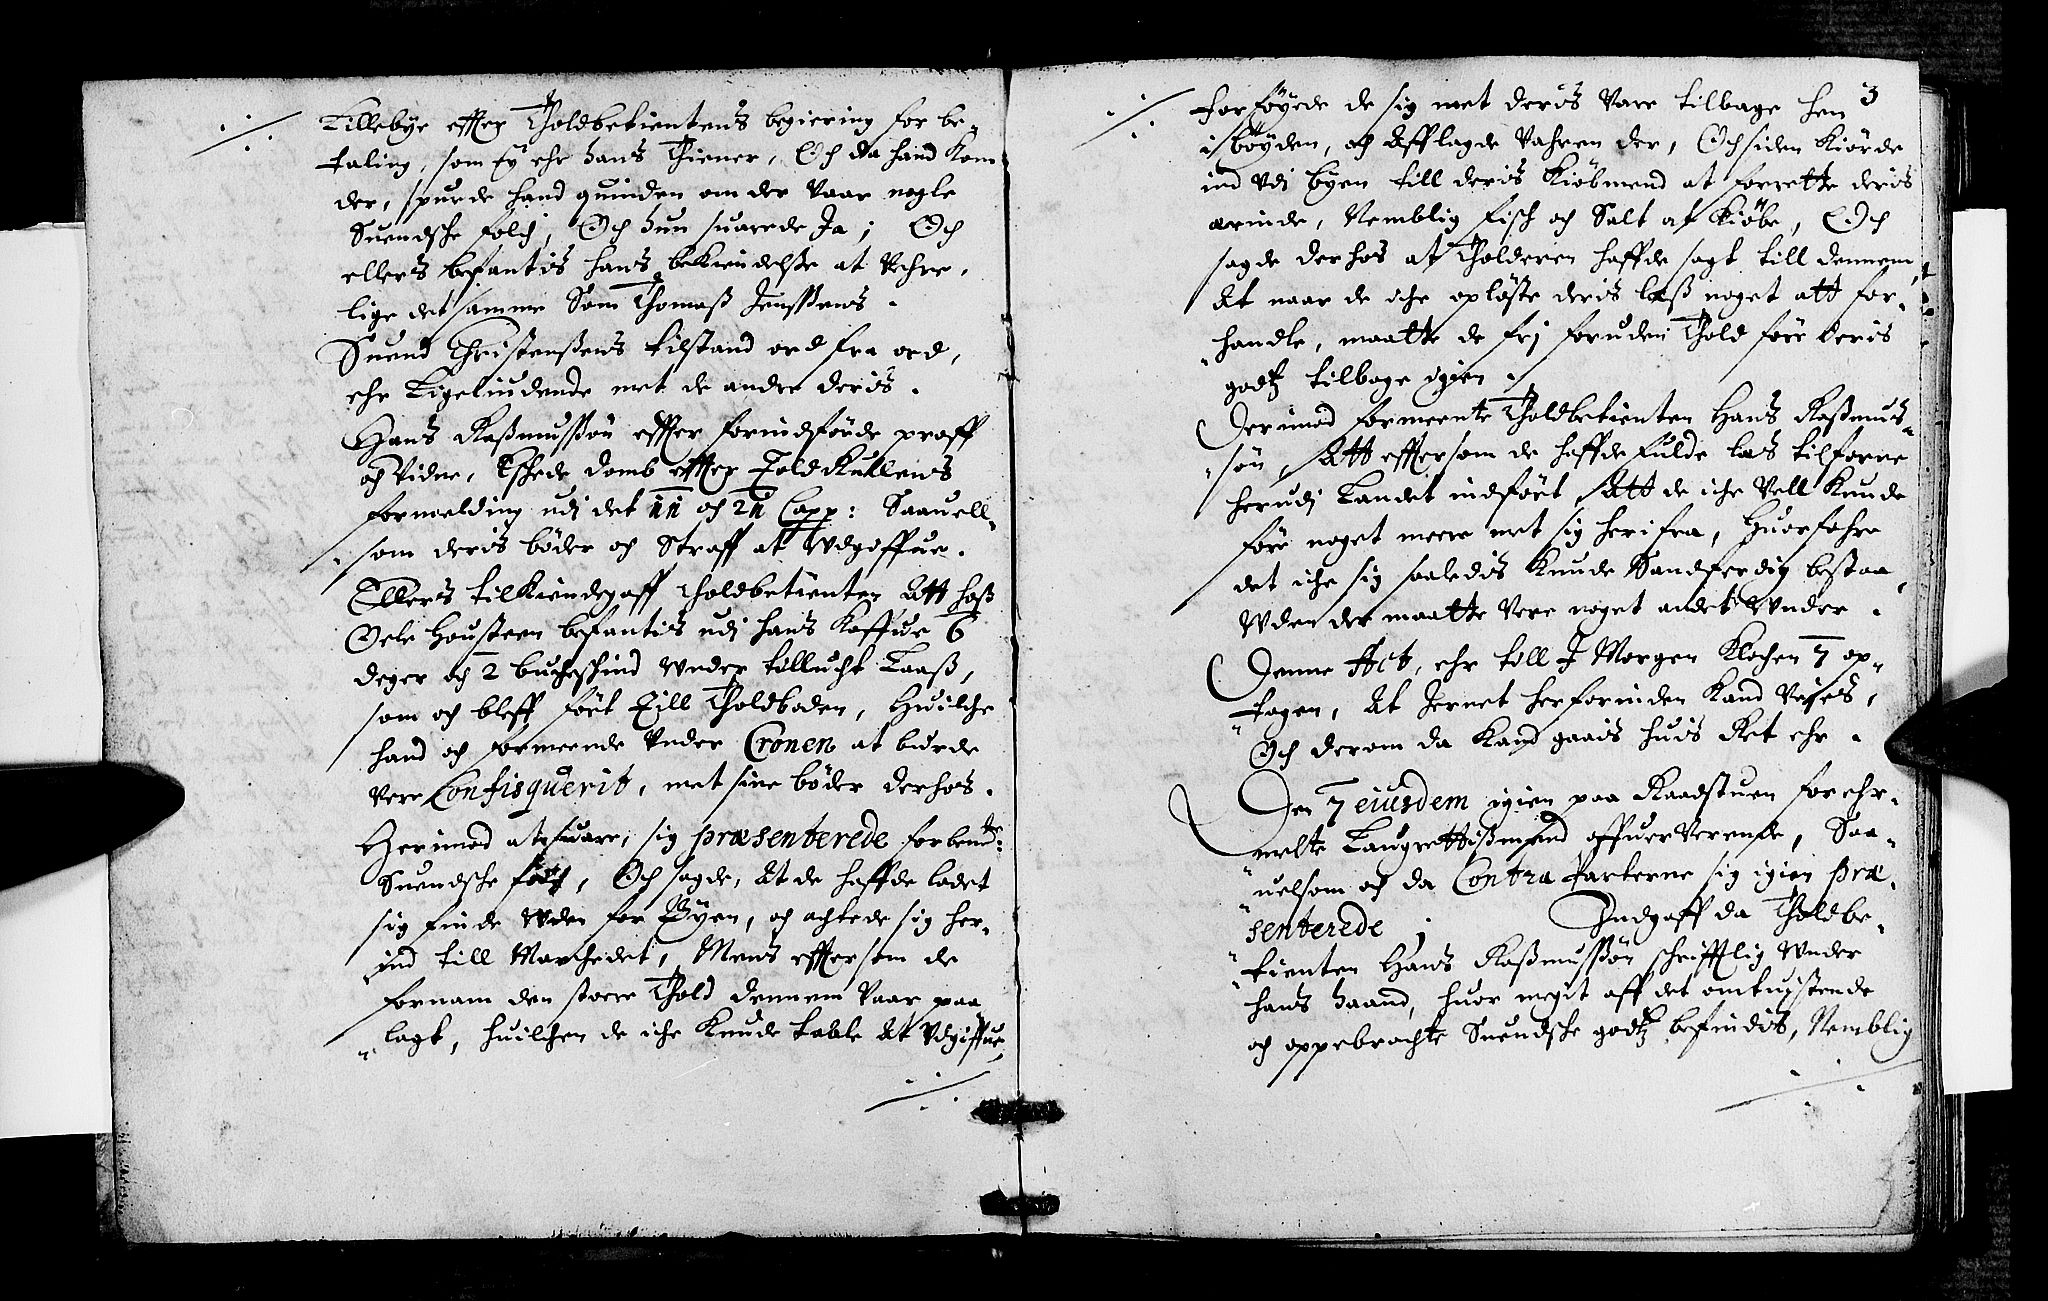 Lillebye effter Tholdbetientens begiering for be-
taling, som hans Thiener, Och da hand Kom
der, spurde hand quinden om der Vaar nogle
Suendsche folch, Och hun suarede Ja; Och
ellers befantis hans bekiendelsse at Vehre,
lige det samme Som Thomaß Jenssens.
Suend Christensens tilstand ord fra ord,
ehr Ligeliudende met de andre deris.
Hans Raßmussøn effter forindførde proff
och Vidne, Eschede domb effter Told Rullens
formelding udj det 11 och 21 Capp: Saauell-
som deris bøder och Straff at Udgiffue.
Ellers tilkiendegaff tholdbetienten Att hoß
Oele Housteen befantis udj hans Koffue 6
deger och 2 buckeskind Under tillucht Laaß,
som och bleff ført Till Tholdboden, Huilche
hand och formeende Under Cronen at burde
vere Confisquerit, met sine bøder derhos.
Herimod at suare, sig præsenterede forbemte:
Suendsche folch, Och sagde, At de haffde ladet
sig finde Uden for Byen, och achtede sig her-
ind till Marchedet, Mens effter som de
fornam den stoere Thold dennem Vaar paa
lagt, huilchen de iche Kunde taale At Udgiffue
3
forføyede de sig met deris Vare tilbage hen
i bøyden, och Afflagde Vahren der, Och siden Kiørde
ind Udj byen till deris Kiøbmend at forrette deris
ærinde, Nemblig fisch och Salt af Kiøbe, Och
sagde derhos at Tholderen haffde sagt till dennem,
At naar de iche opløste deris læß noget att for-
handle, maatte de frj foruden Thold føre deris
godtz tilbage igien.
Derimod formeente Tholdbetienten Hans Raßmus-
søn, Att effter som de haffde fulde læs tilforne
herudj Landet indført, Att de iche Vell Kunde
føre noget mere met sig herifra, Huorfohre
det iche sig saaledis Kunde Sandferdig bestaa,
Uden der maatte Vere noget andet Under.
Denne Act, ehr till J Morgen Klochen 7 op-
tagen, At Jernet herforinden Kand Veyes,
Och derom da Kand gaais huis Ret ehr.
Den 7 eiusdem igien paa Raadstuen for ehr-
melte Laugrettismend offuerVerende, Saa-
uelsom och da Contra Parterne sig igien præ-
senterede; Indgaff da Tholdbe-
tienten Hans Raßmussøn schrifftlig Under
hans haand, huor megit aff det omtuistende
och oppebrachte Suendsche godtz befindis, Nemblig